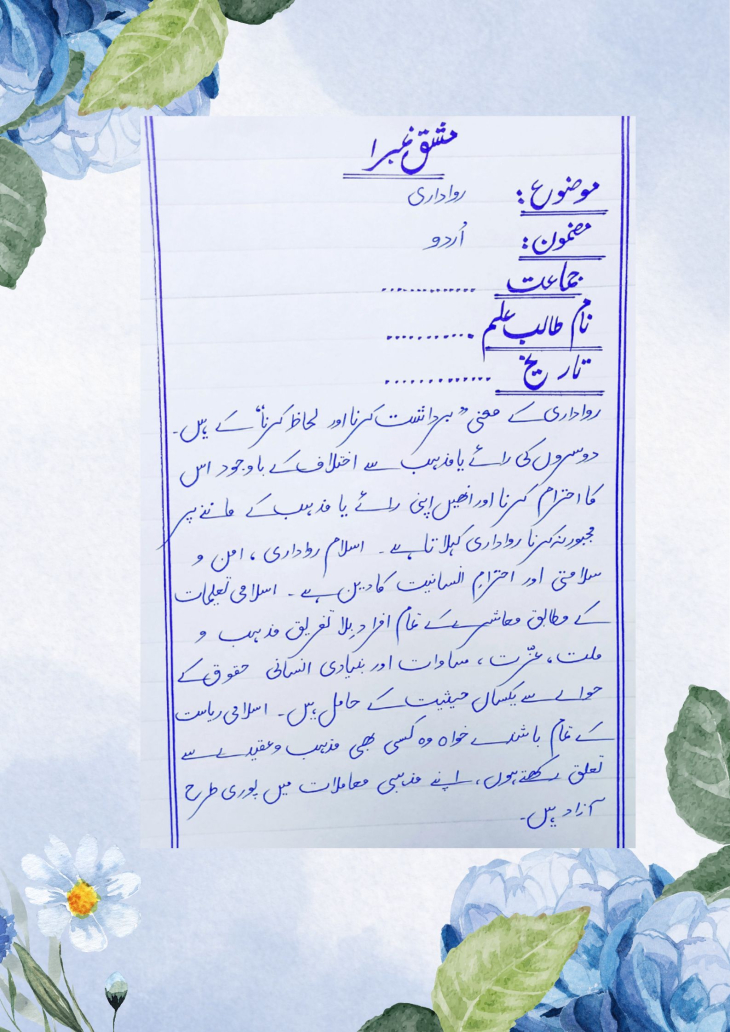 مشق نمبر ا
موضوع: رواداری
مضمون: اُردو
جماعت .............
نام طالب علم ............
تاریخ .............
رواداری کے معنی "برداشت کرنا اور لحاظ کرنا" کے ہیں۔
دوسروں کی رائے یا مذہب سے اختلاف کے باوجود اس
کا احترام کرنا اور انھیں اپنی رائے یا مذہب کے ماننے پر
مجبور نہ کرنا رواداری کہلاتا ہے۔ اسلام رواداری، امن و
سلامتی اور احترامِ انسانیت کا دین ہے۔ اسلامی تعلیمات
کے مطابق معاشرے کے تمام افراد بلا تفریق مذہب و
ملت، عزّت، مساوات اور بنیادی انسانی حقوق کے
حوالے سے یکساں حیثیت کے حامل ہیں۔ اسلامی ریاست
کے تمام باشندے خواہ وہ کسی بھی مذہب و عقیدے سے
تعلق رکھتے ہوں، اپنے مذہبی معاملات میں پوری طرح
آزاد ہیں۔